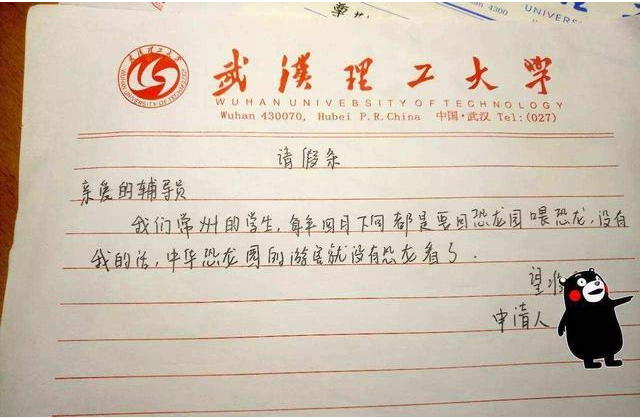 武汉理工大学
WUHAN UNIVERSITY OF TECHNOLOGY
Wuhan 430070, Hubei P.R.China 中国·武汉 Tel:(027)
请假条
亲爱的辅导员
我们常州的学生，每年四月下旬都是要回恐龙园喂恐龙，没有
我的话，中华恐龙园的游客就没有恐龙看了．
望
申请人